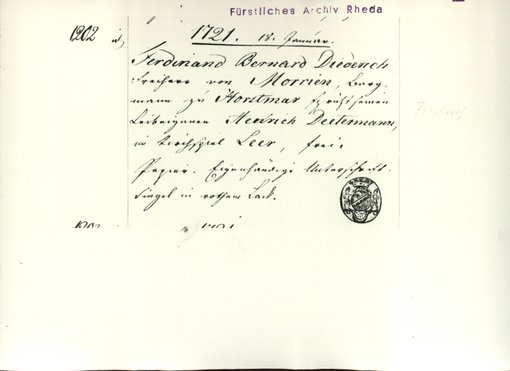 Fürstliches Archiv Rheda
1202 d,
1721. 18. Januar.
Ferdinand Bernard Diederich
Freiherr von Morrien, Burg-
mann zu Horstmar spricht seinen
Leibeignen Heinrich Deetermann,
im Kirchspiel Leer, frei.
Papier. Eigenhändige Unterschrift.
Siegel in rothem Lack.